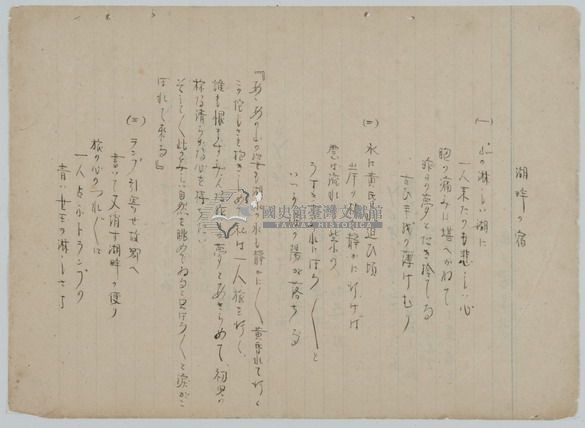 湖畔の宿
(一)
山の淋しい湖に
一人来たのも悲しい心
胸の痛みに堪へかねて
昨日の夢とたき捨てる
古ひ手紙の薄けむり
(二)
水に黄昏迫ひ頃
岸の林を静かに行けば
雲は流れ紫の
うすき
にほろ〱と
いつか
の陽が落ちる
『あゝあの山の姿も湖の水も静かに〱黄昏れて行く
この
さを抱きしめて私は一人旅を行く
誰も恨まず
夢とあきらめて、
様な清らかな心を
そうして
自然を眺めてゐると只ほろ〱と涙が
ぼれて来る』
(三)
ランプ引寄せ故郷へ
書いて又消す湖畔の便り
旅の心のつれ〲に
一人占ふトランプの
青い女王の淋しさよ
國史館臺灣文獻館
TAIWAN HISTORICA